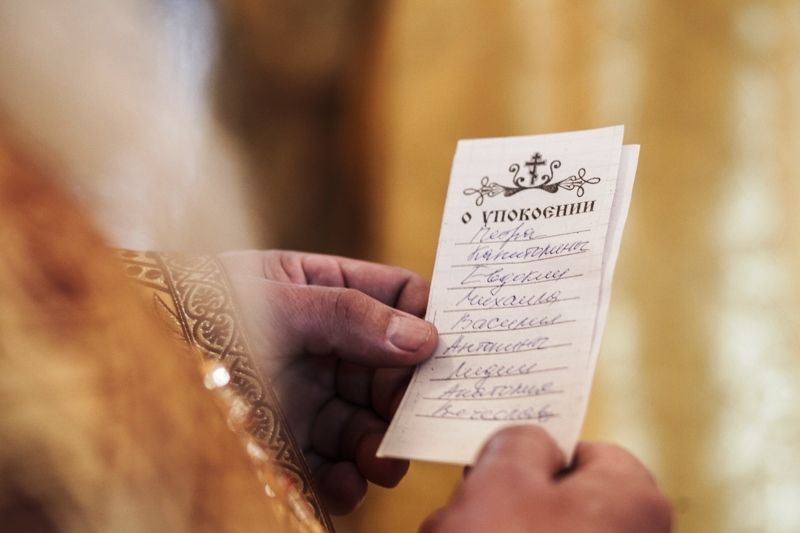 о упокоении
Петра
Капитолины
Евдокии
Михаила
Василия
Антонины
Лидии
Анатолия
Вечеслав